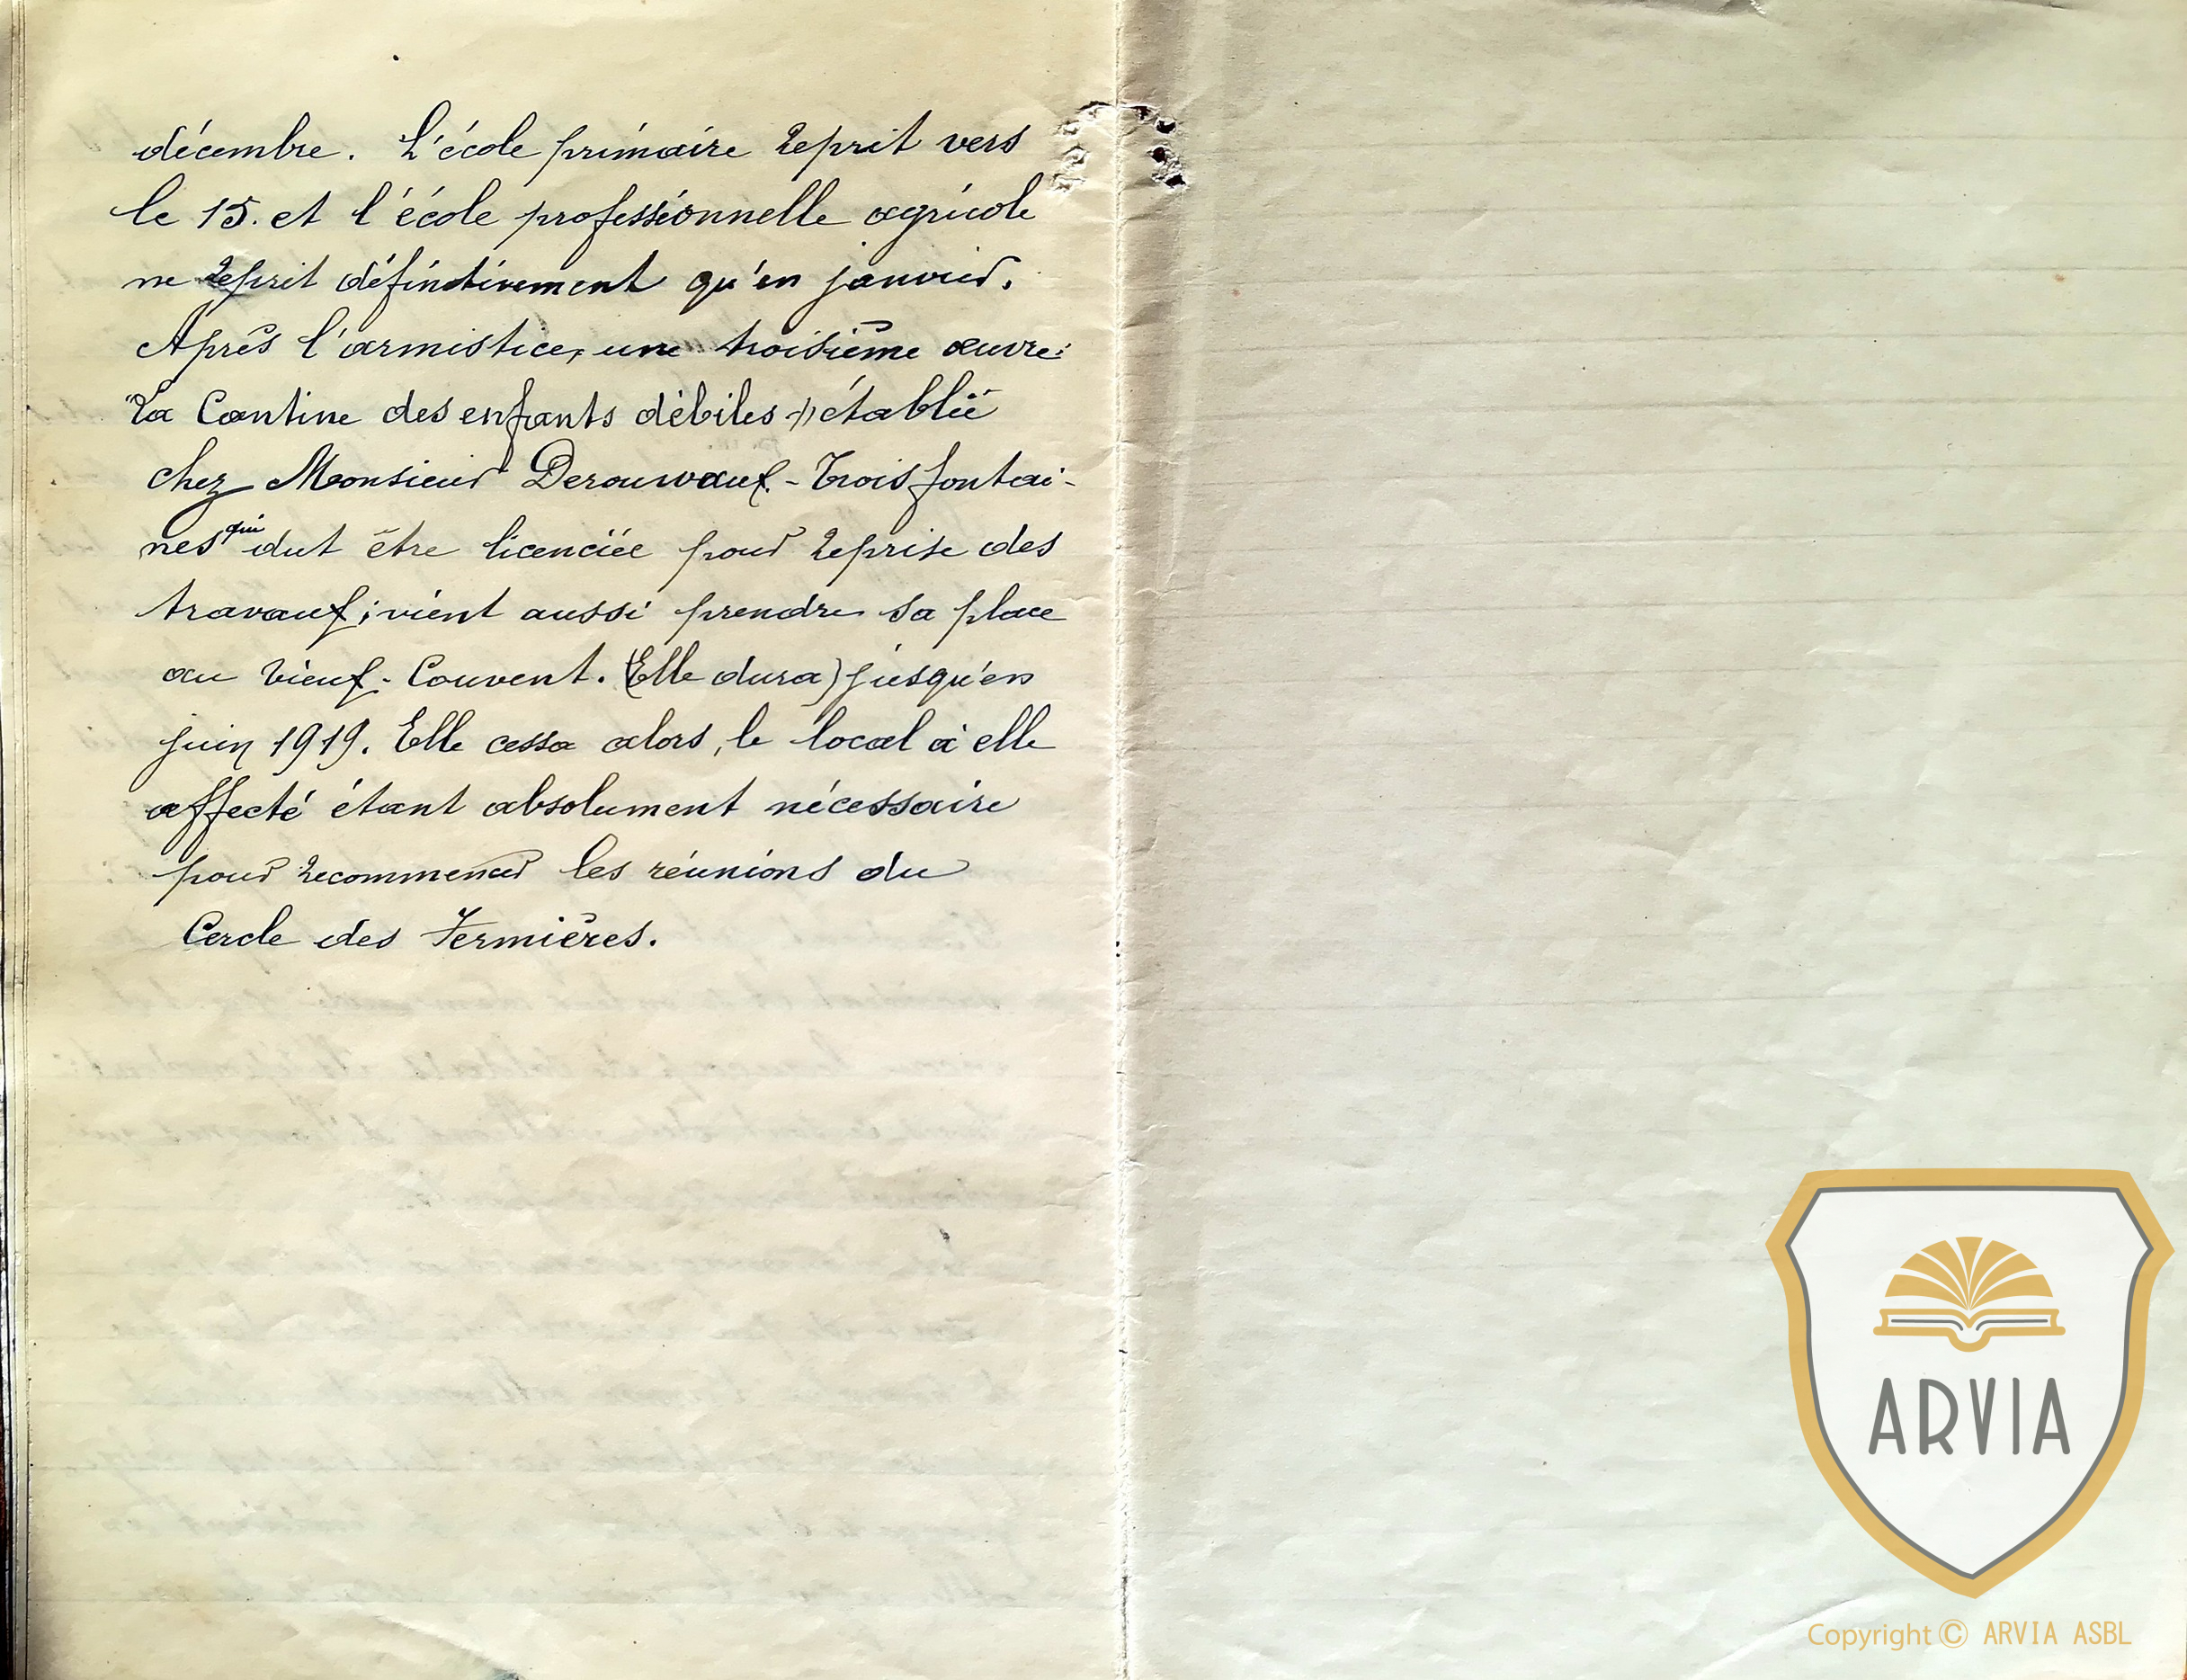 décembre. L'école primaire reprit vers
le 15. et l'école professionnelle agricole
ne reprit définitivement qu'en janvier.
Après l'armistice, une troisième œuvre:
"La Cantine des enfants débiles" établie
chez Monsieur Derouwaux-Troisfontai-
nes qui dut être licenciée pour reprise des
travaux; vient aussi prendre sa place
au Vieux-Couvent. (Elle dura) jusqu'en
juin 1919. Elle cessa alors, le local à elle
affecté étant absolument nécessaire
pour recommencer les réunions du
Cercle des Fermières.
ARVIA
Copyright © ARVIA ASBL